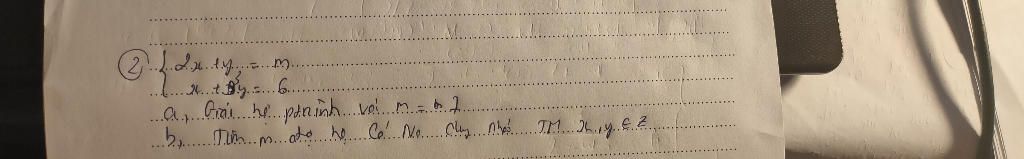 2, { 2x + y = m
x + 3y = 6
a, Giải hệ ptrình với m = 2
b, Tìm m để hệ có No duy nhất TM x, y ∈ Z